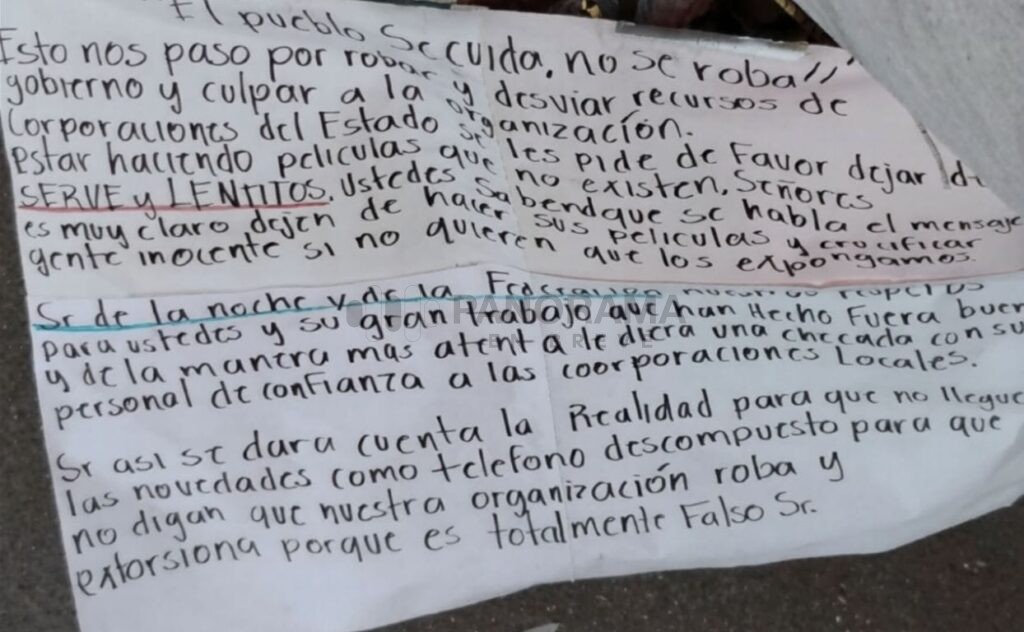 "El pueblo Se cuida, no se roba//"
Esto nos paso por robar y desviar recursos de
gobierno y culpar a la organización.
Corporaciones del Estado se les pide de Favor dejar de
estar haciendo peliculas que no existen, Señores
SERVE y LENTITOS. Ustedes Sabendque se habla el mensaje
es muy claro dejen de hacer sus peliculas y crucificar
gente inocente si no quieren que los expongamos.
Sr de la noche y de la Federación nuestros respetos
para ustedes y su gran trabajo que han Hecho Fuera buen
y de la manera mas atenta le diera una checada con su
personal de confianza a las coorporaciones Locales.
Sr asi se dara cuenta la Realidad para que no llegue
las novedades como telefono descompuesto para que
no digan que nuestra organización roba y
extorsiona porque es totalmente Falso Sr.
PANORAMA